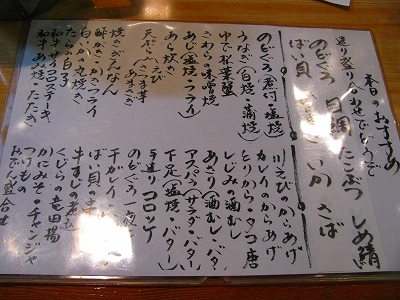 本日のおすすめ
造り盛り合わせでどうぞ
のどぐろ 目鯛 たこぶつ しめ鯖
ばい貝 いか さば
のどぐろ(煮付・塩焼)
うなぎ(白焼・蒲焼)
ゆで松葉蟹
さわらの味噌焼
あじ(塩焼・フライ)
あら炊き
天ぷら
焼きぎんなん
酢がきカキフライ
白いかの丸焼き
たらの白子
和牛サイコロステーキ
和牛あぶり焼・たたき
川えびのからあげ
カレイのからあげ
とりから・タコ唐
しじみ(酒むし)
あさり(酒むし・バター)
アスパラ(サラダ・バター)
下足(塩焼・バター)
手造りコロッケ
のどぐろ一夜干
干がれい
ばい貝の
牛すじの煮込
くじらの竜田揚
かにみそ・チャンジャ
つけもの
おでん盛合せ